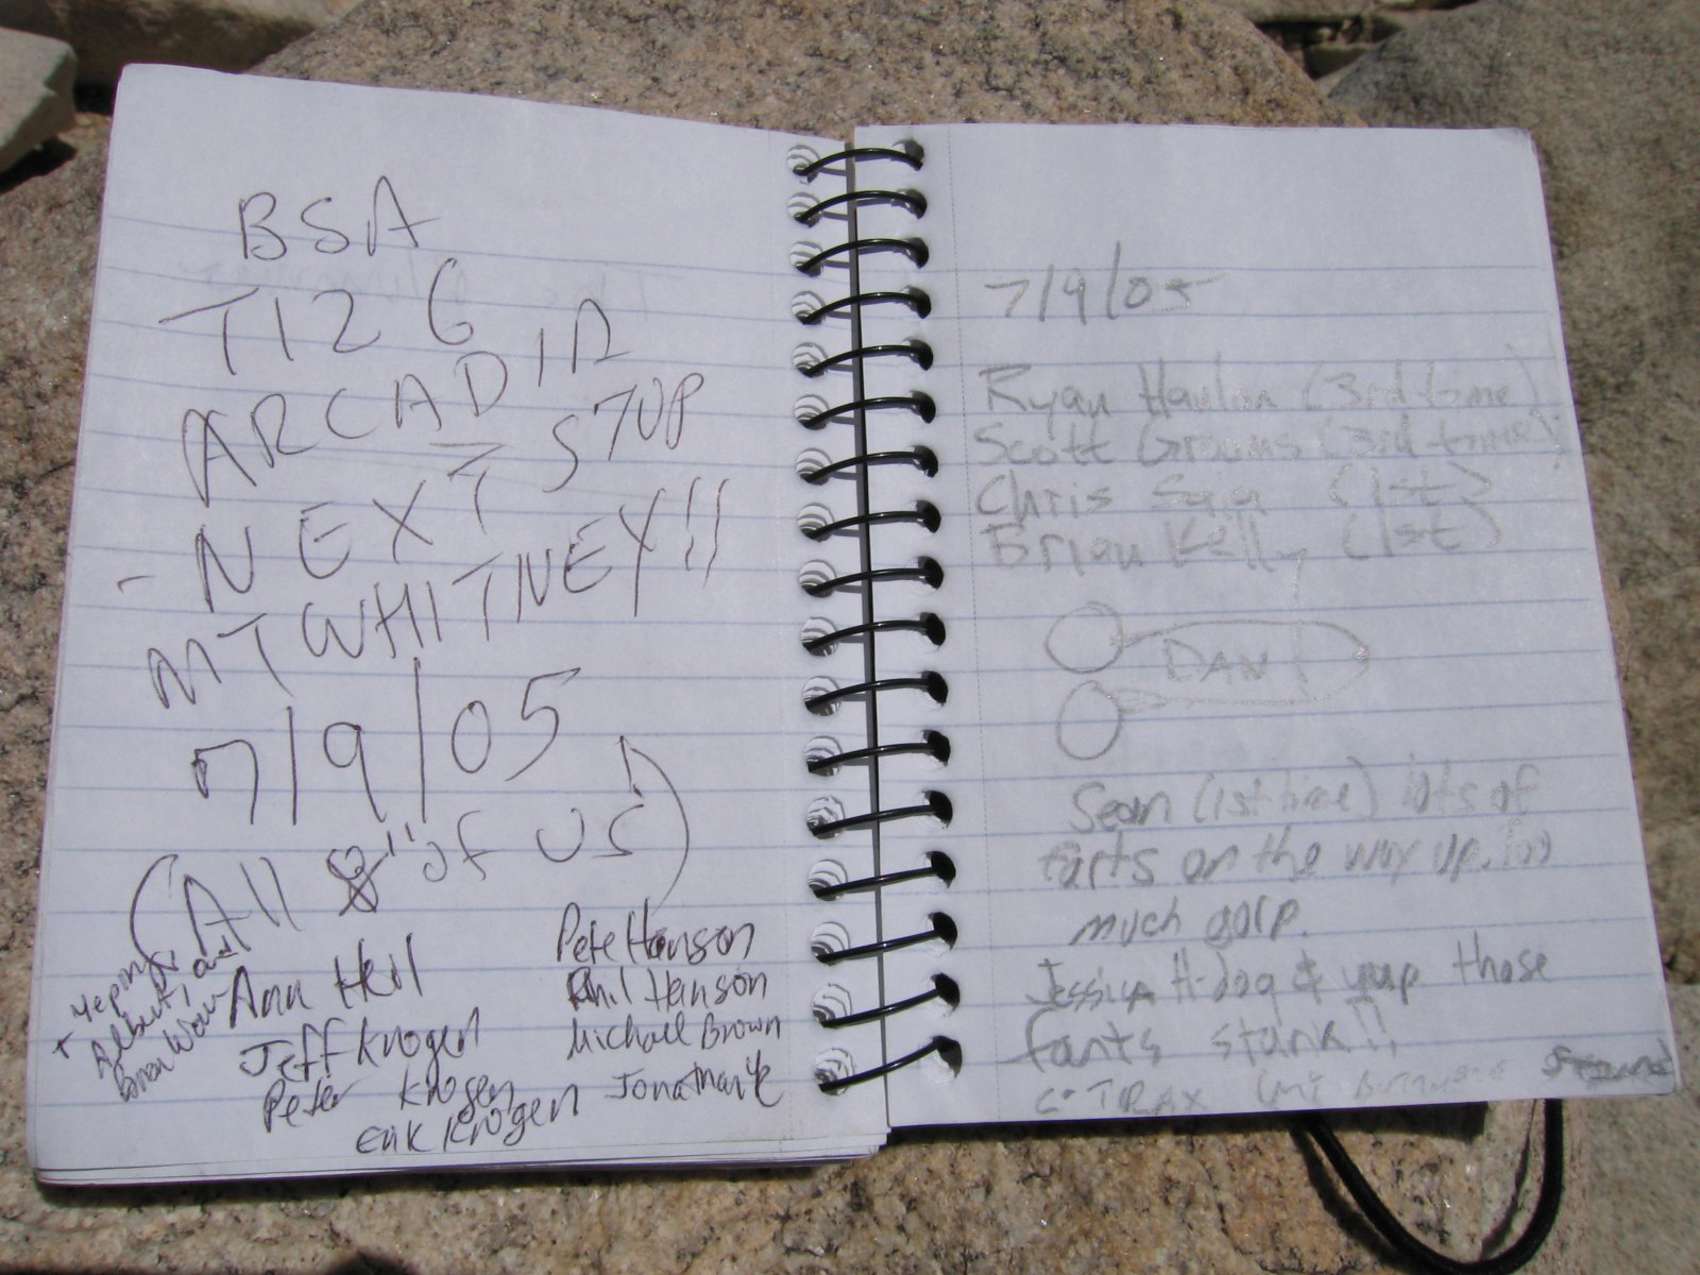 BSA
T126
ARCADIA
- NEXT STOP
MT WHITNEY!!
7/9/05
(All 8" of us)
+ Yeping,
Albert, and
Brian Wow
Ann Heil
Jeff Krogen
Peter Krogen
Erik Krogen
Pete Hanson
Phil Hanson
Michael Brown
Jonathan Ye
7/9/05
Ryan Hanlon (3rd time)
Scott Grooms (3rd time)
Chris (1st)
Brian Kelly (1st)
DAN
Sean (1st time) lots of
farts on the way up. too
much gorp.
Jessica H-dog & yup those
farts stank!!